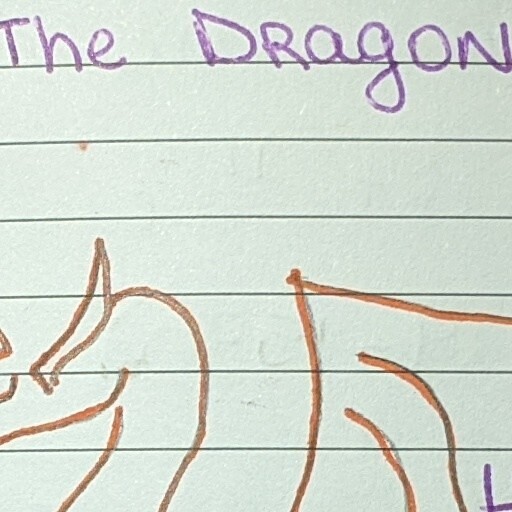 The DRagON
L